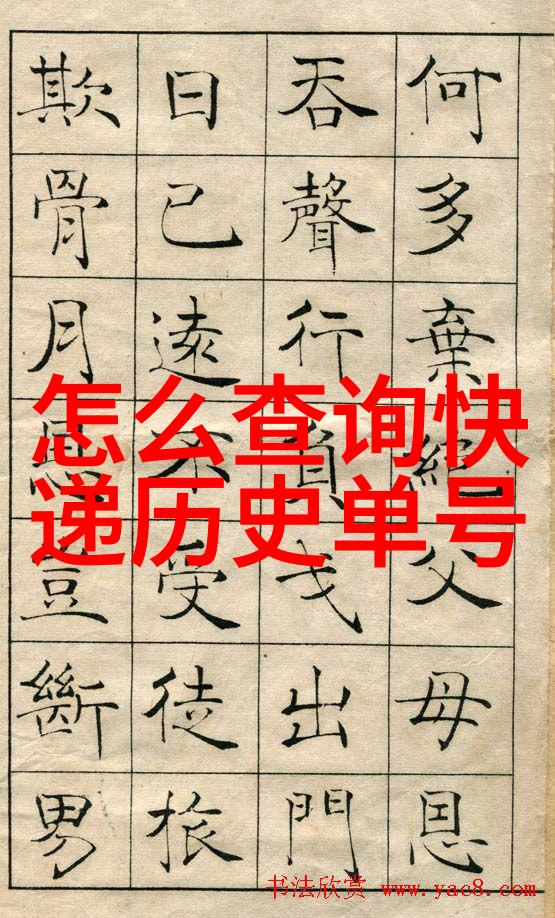 何多棄絕父母恩
吞聲行負戈出門
日已遠不受徒旅
欺骨月恩豈斷男
怎么查询快
递历史单号
书法欣赏 www.yac8.com